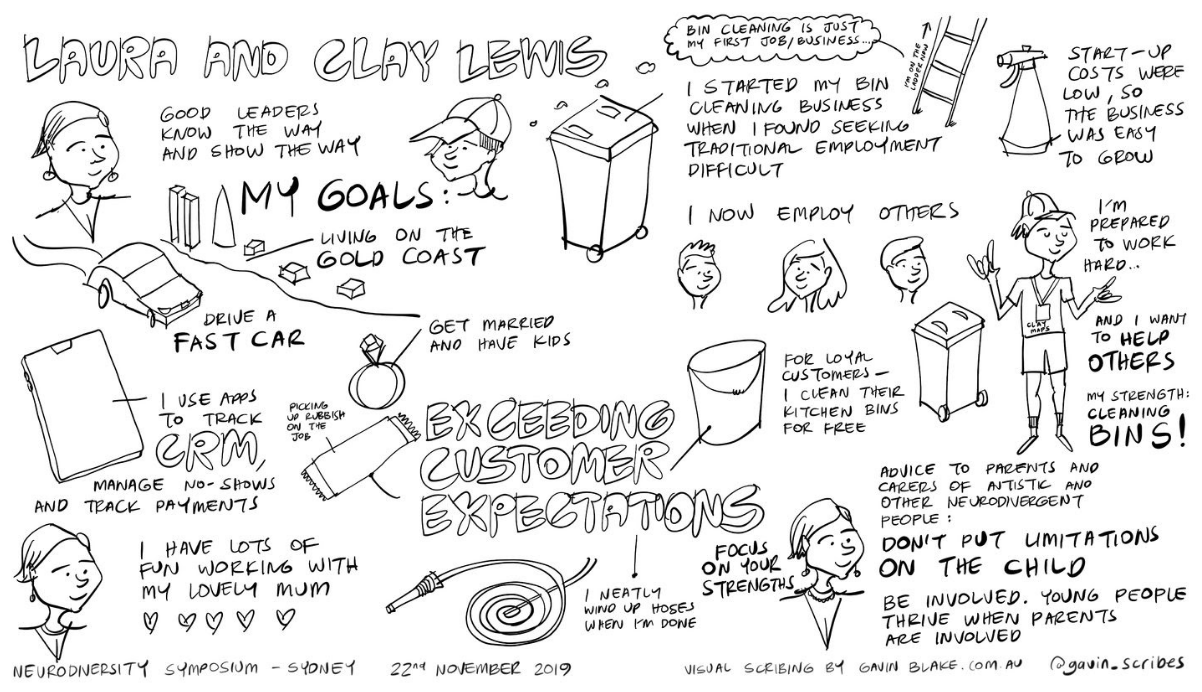 LAURA AND CLAY LEWIS
GOOD LEADERS
KNOW THE WAY
AND SHOW THE WAY
MY GOALS:
LIVING ON THE
GOLD COAST
DRIVE A
FAST CAR
GET MARRIED
AND HAVE KIDS
I USE APPS
TO TRACK
CRM,
MANAGE NO-SHOWS
AND TRACK PAYMENTS
PICKING
UP RUBBISH
ON THE
JOB
EXCEEDING
CUSTOMER
EXPECTATIONS
I HAVE LOTS OF
FUN WORKING WITH
MY LOVELY MUM
I NEATLY
WIND UP HOSES
WHEN I'M DONE
BIN CLEANING IS JUST
MY FIRST JOB/BUSINESS...
I'M ON THE
LADDER NOW
I STARTED MY BIN
CLEANING BUSINESS
WHEN I FOUND SEEKING
TRADITIONAL EMPLOYMENT
DIFFICULT
START-UP
COSTS WERE
LOW, SO
THE BUSINESS
WAS EASY
TO GROW
I NOW EMPLOY OTHERS
I'M
PREPARED
TO WORK
HARD...
CLAY
MAPS
AND I WANT
TO HELP
OTHERS
MY STRENGTH:
CLEANING
BINS!
FOR LOYAL
CUSTOMERS—
I CLEAN THEIR
KITCHEN BINS
FOR FREE
FOCUS
ON YOUR
STRENGTHS
ADVICE TO PARENTS AND
CARERS OF ANTISTIC AND
OTHER NEURODIVERGENT
PEOPLE:
DON'T PUT LIMITATIONS
ON THE CHILD
BE INVOLVED. YOUNG PEOPLE
THRIVE WHEN PARENTS
ARE INVOLVED
NEURODIVERSITY SYMPOSIUM - SYDNEY 22nd NOVEMBER 2019
VISUAL SCRIBING BY GAVIN BLAKE.COM.AU @gavin_scribes